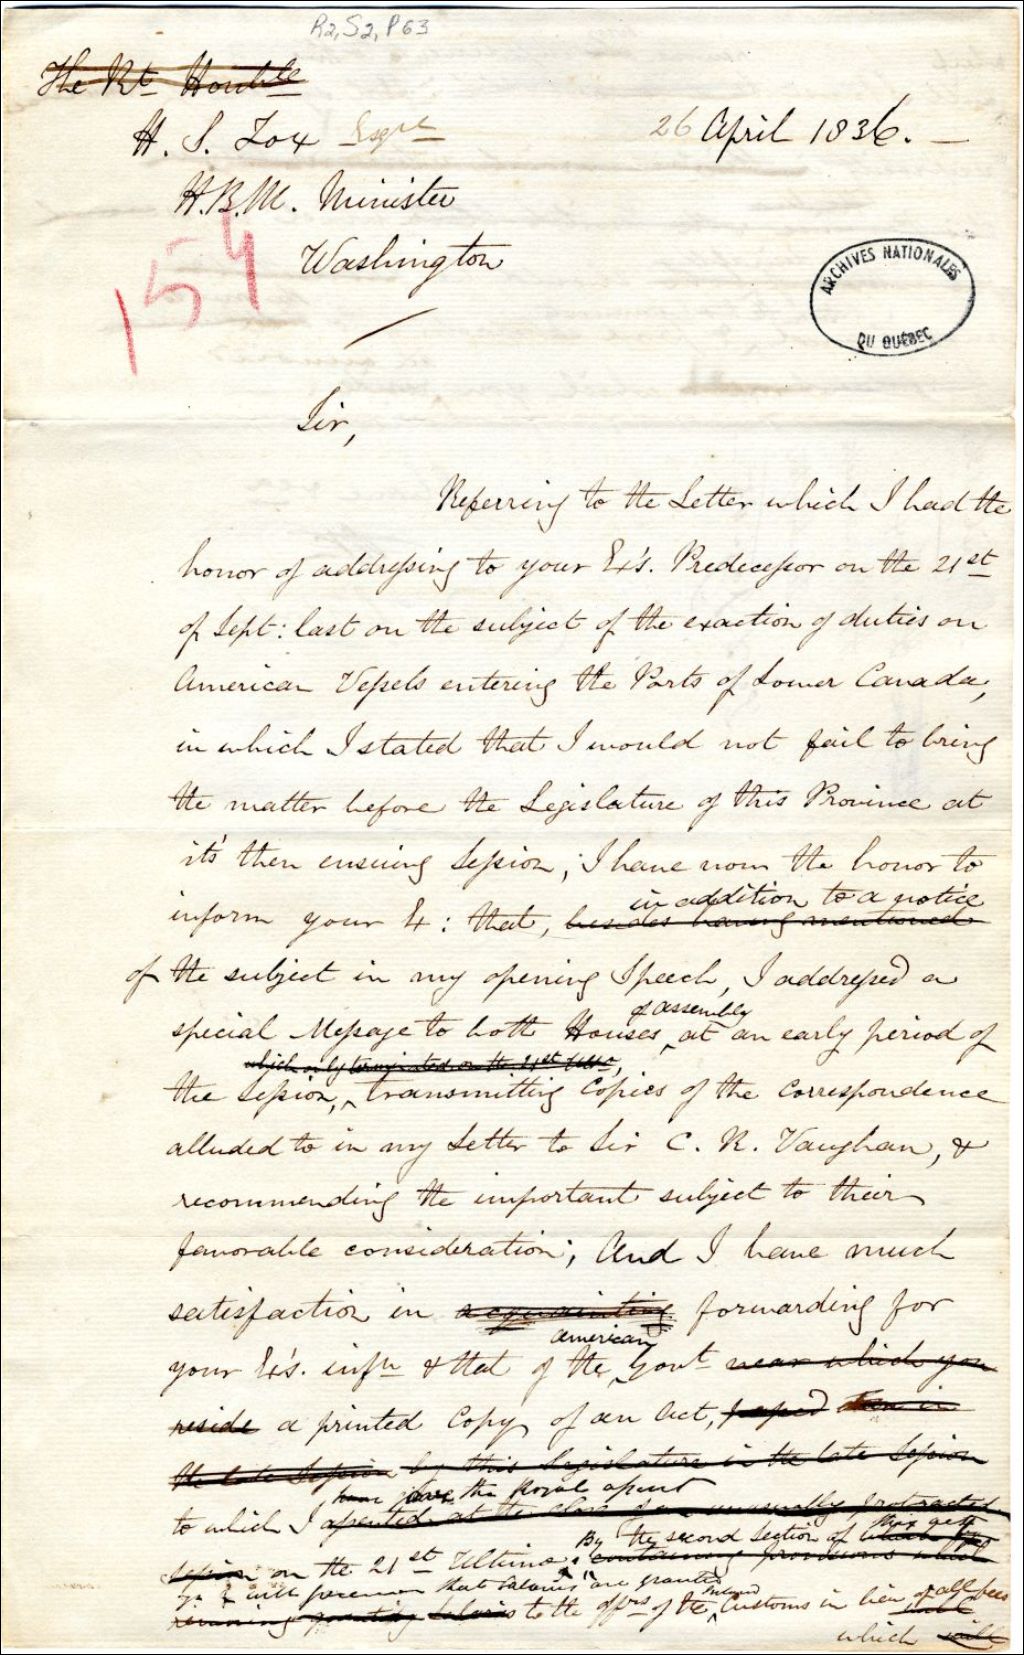 R2, S2, P63
The Rt Honble
H. S. Fox Esqre
26 April 1836. —
H.B.M. Minister
Washington
154
ARCHIVES NATIONALES
DU QUÉBEC
Sir,
Referring to the Letter which I had the
honor of addressing to your Ex's. Predecessor on the 21st
of Sept: last on the subject of the exaction of duties on
American Vessels entering the Ports of Lower Canada,
in which I stated that I would not fail to bring
the matter before the Legislature of this Province at
it's then ensuing Session; I have now the honor to
in addition to a notice
inform your Ex: that, besides having mentioned
of the subject in my opening Speech, I addressed a
of assembly
special Message to both Houses, at an early period of
which only terminated on the 21st Ulto,
the Session, transmitting Copies of the correspondence
alluded to in my Letter to Sir C. R. Vaughan, &
recommending the important subject to their
favorable consideration; And I have much
satisfaction in acquainting forwarding for
American
your Ex's. infn & that of the Govt near which you
reside a printed Copy of an Act, passed in
the late Session by this Legislature in the late Session
have gave the Royal assent
to which I assented at the close of an unusually protracted
By the second Section of this act
Session on the 21st Ultimo, containing provisions which
Yr Ex will perceive that Salaries are granted
granting Salaries to the offrs of the Inland Customs in lieu of all fees
which will